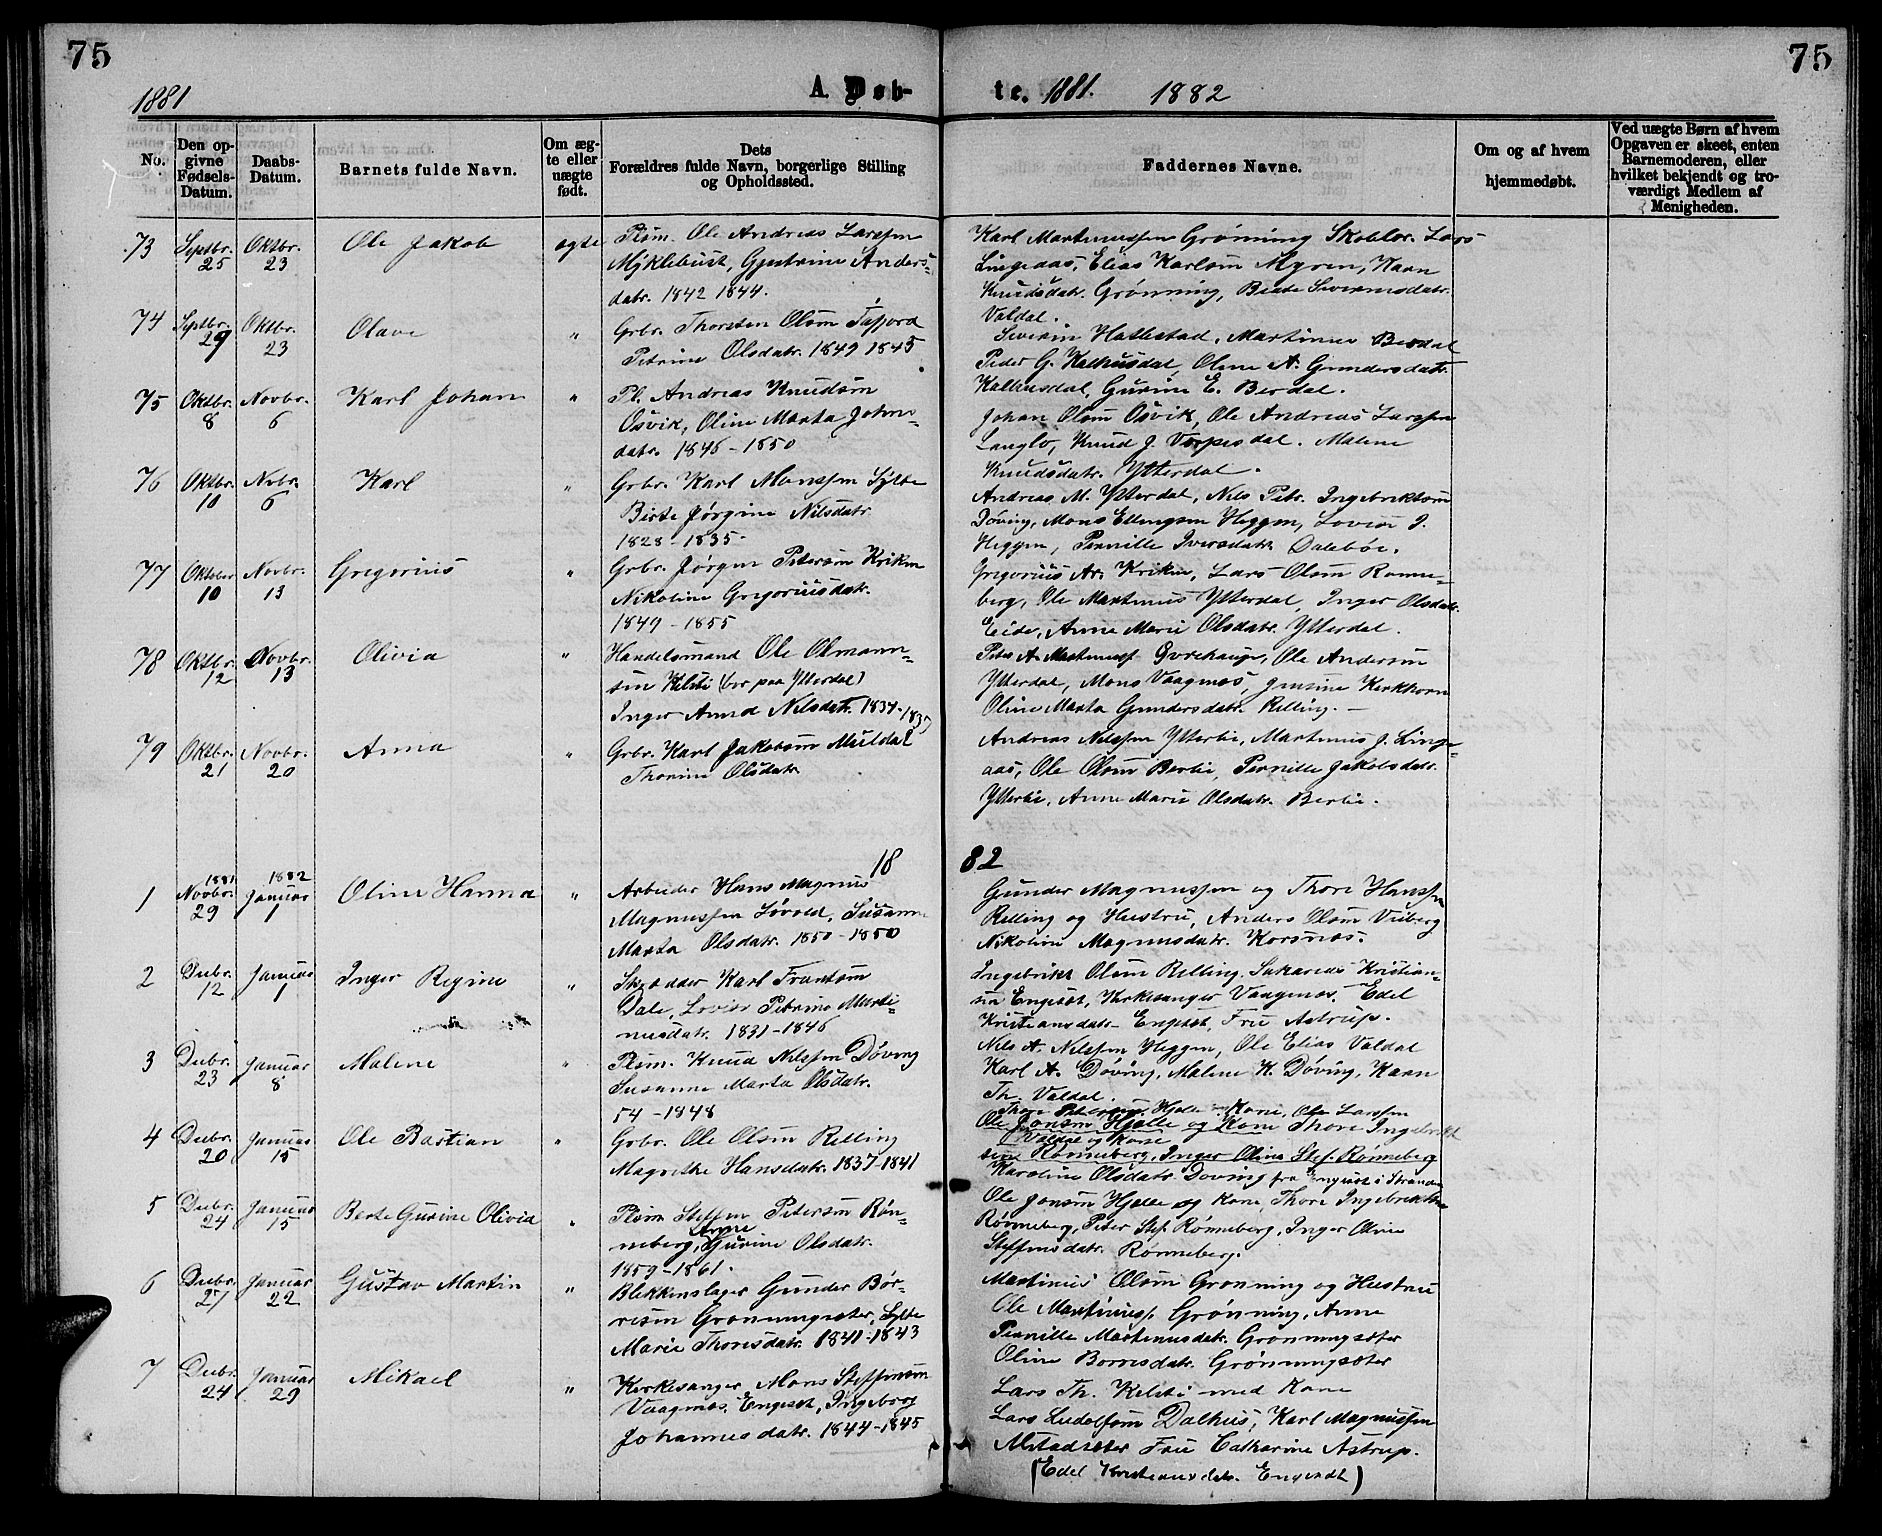 75
75
1881
A. Døb-
te. 1881. 1882
No.
Den op-
givne
Fødsels-
Datum.
Daabs-
Datum.
Barnets fulde Navn.
Om æg-
te eller
uægte
født.
Dets
Forældres fulde Navn, borgerlige Stilling
og Opholdssted.
Faddernes Navne.
Om og af hvem
hjemmedøbt.
Ved uægte Børn af hvem
Opgaven er skeet, enten
Barnemoderen, eller
hvilket bekjendt og tro-
værdigt Medlem af
Menigheden.
73 Septbr. 25 Oktbr. 23 Ole Jakob ægte Plsm. Ole Andreas Larssen
Myklebust, Gjertrine Anders-
datr. 1842 1844.
Karl Martinussen Grønning Skolelær. Lars
Lingeaas, Elias Karlsen Myren, Karn
Knudsdatr. Grønning, Beate Severinsdatr.
Valdal.
74 Septbr. 29 Oktbr. 23 Olave " Grbr. Thorsten Olsøn Tafjord
Petrine Olsdatr. 1849 1845
Severin Hatlestad, Martinus Berdal
Peder G. Kalhusdal, Oline A. Gundersdatr.
Kalhusdal, Gurine E. Berdal.
75 Oktbr. 8 Novbr. 6 Karl Johan " Pl. Andreas Knudsøn
Osvik, Oline Marta Johns-
datr. 1846 - 1850
Johan Olsøn Osvik, Ole Andreas Larssen
Langlo, Knud J. Verpesdal. Malene
Knudsdatr. Ytterdal.
76 Oktbr. 10 Nvbr. 6 Karl " Grbr. Karl Monssen Sylte
Birte Jørgine Nilsdatr.
1828 - 1835.
Andreas M. Ytterdal, Nils Petr. Ingebriktsøn
Døving, Mons Ellingsen Heggen, Lovise J.
Heggen, Pernille Iversdatr. Dalebøe.
77 Oktober 10 Novbr. 13 Gregorius " Grbr. Jørgen Petersøn Kriken
Nikoline Gregoriusdatr.
1849 - 1855
Gregorius Ar. Kriken, Lars Olsøn Rønne-
berg, Ole Martinus Ytterdal, Inger Olsdatr.
Eide, Anne Marie Olsdatr. Ytterdal.
78 Oktbr. 12 Novbr. 13 Olivia " Handelsmand Ole Olmann-
sen Kelsti (bor paa Ytterdal)
Inger Anna Nilsdatr. 1834 - 1837
Peter A. Martinuss. Gurehauge, Ole Andersen
Ytterdal, Mons Vaagnæs, Jensine Kirkhorn
Oline Marta Gundersdatr. Relling. -
79 Oktbr. 21 Novbr. 20 Anna " Grbr. Karl Jakobsøn Muldal
Thorine Olsdatr.
Andreas Nilssen Ytterlie, Martinus J. Linge-
aas, Ole Olsøn Berlie, Pernille Jakobsdatr.
Ytterlie, Anne Marie Olsdatr. Berlie.
18 82
1 1881 Novbr. 29 1882 Januar 1 Oline Hanna " Arbeider Hans Magnus
Magnussen Løvold, Susanne
Marta Olsdatr. 1850 - 1850
Gunder Magnussen og Thore Hanssen
Relling og Hustru, Anders Olsøn Viberg
Nikoline Magnusdatr. Korsnæs.
2 Decbr. 12 Januar 1 Inger Regine " Skrædder Karl Frantsøn
Dale, Lovise Petrine Marti-
nusdatr. 1831 - 1846
Ingebrikt Olsøn Relling. Sakarias Kristian-
sen Engeset, Kirkesanger Vaagnæs. Edel
Kristiansdatr. Engeset, Fru Astrup.
3 Decbr. 23 Januar 8 Malene " Plsm. Knud Nilssen Døving
Susanne Marta Olsdatr.
54 - 1848
Nils A. Nilssen Heggen, Ole Elias Valdal
Karl A. Døving, Malene K. Døving, Karn
Th. Valdal.
4 Decbr. 20 Januar 15 Ole Bastian " Grbr. Ole Olsøn Relling
Magrethe Hansdatr. 1837 - 1841
Thore Petersøn Hjelle Kone, Ole Larssen
Ole Jonsøn Hjelle og Kone Thore Ingebrikt
Valdal og Kone
sen Rønneberg, Inger Oline Stef. Rønneberg
Karoline Olsdatr. Døving fra Engeset i Stranden
5 Decbr. 24 Januar 15 Berte Gurine Olivia " Plsm. Steffen Petersøn Røn-
neberg, Anne Gurine Olsdatr.
1859 - 1861.
Ole Jonsøn Hjelle og Kone Thore Ingebriktsen
Rønneberg, Peter Stef. Rønneberg, Inger Oline
Steffensdatr. Rønneberg.
6 Decbr. 27 Januar 22 Gustav Martin " Blikkenslager Gunder Bør-
resen Grønningsæter, Sylte
Marie Thoresdatr. 1841 - 1843
Martinus Olsøn Grønning og Hustru
Ole Martinuss. Grønning, Anne
Pernille Martinusdatr. Grønningsæter
Oline Børresdatr. Grønningsæter
7 Decbr. 24 Januar 29 Mikael " Kirkesanger Mons Steffensøn
Vaagnæs. Engeset, Ingeborg
Johannesdatr. 1844 - 1845
Lars Th. Kelsti med Kone
Lars Ludolfsøn Dalhus, Karl Magnussen
Alstadsæter Fru Catharine Astrup.
(Edel Kristiansdatr. Engeset)